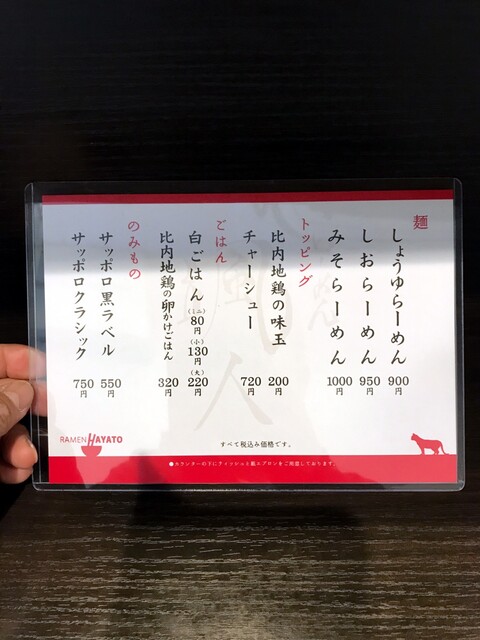 麺
しょうゆらーめん 900円
しおらーめん 950円
みそらーめん 1000円
トッピング
比内地鶏の味玉 200円
チャーシュー 720円
ごはん
白ごはん (ミニ)80円 (小)130円 (大)220円
比内地鶏の卵かけごはん 320円
のみもの
サッポロ黒ラベル 550円
サッポロクラシック 750円
すべて税込み価格です。
RAMEN HAYATO
●カウンターの下にティッシュと紙エプロンをご用意しております。